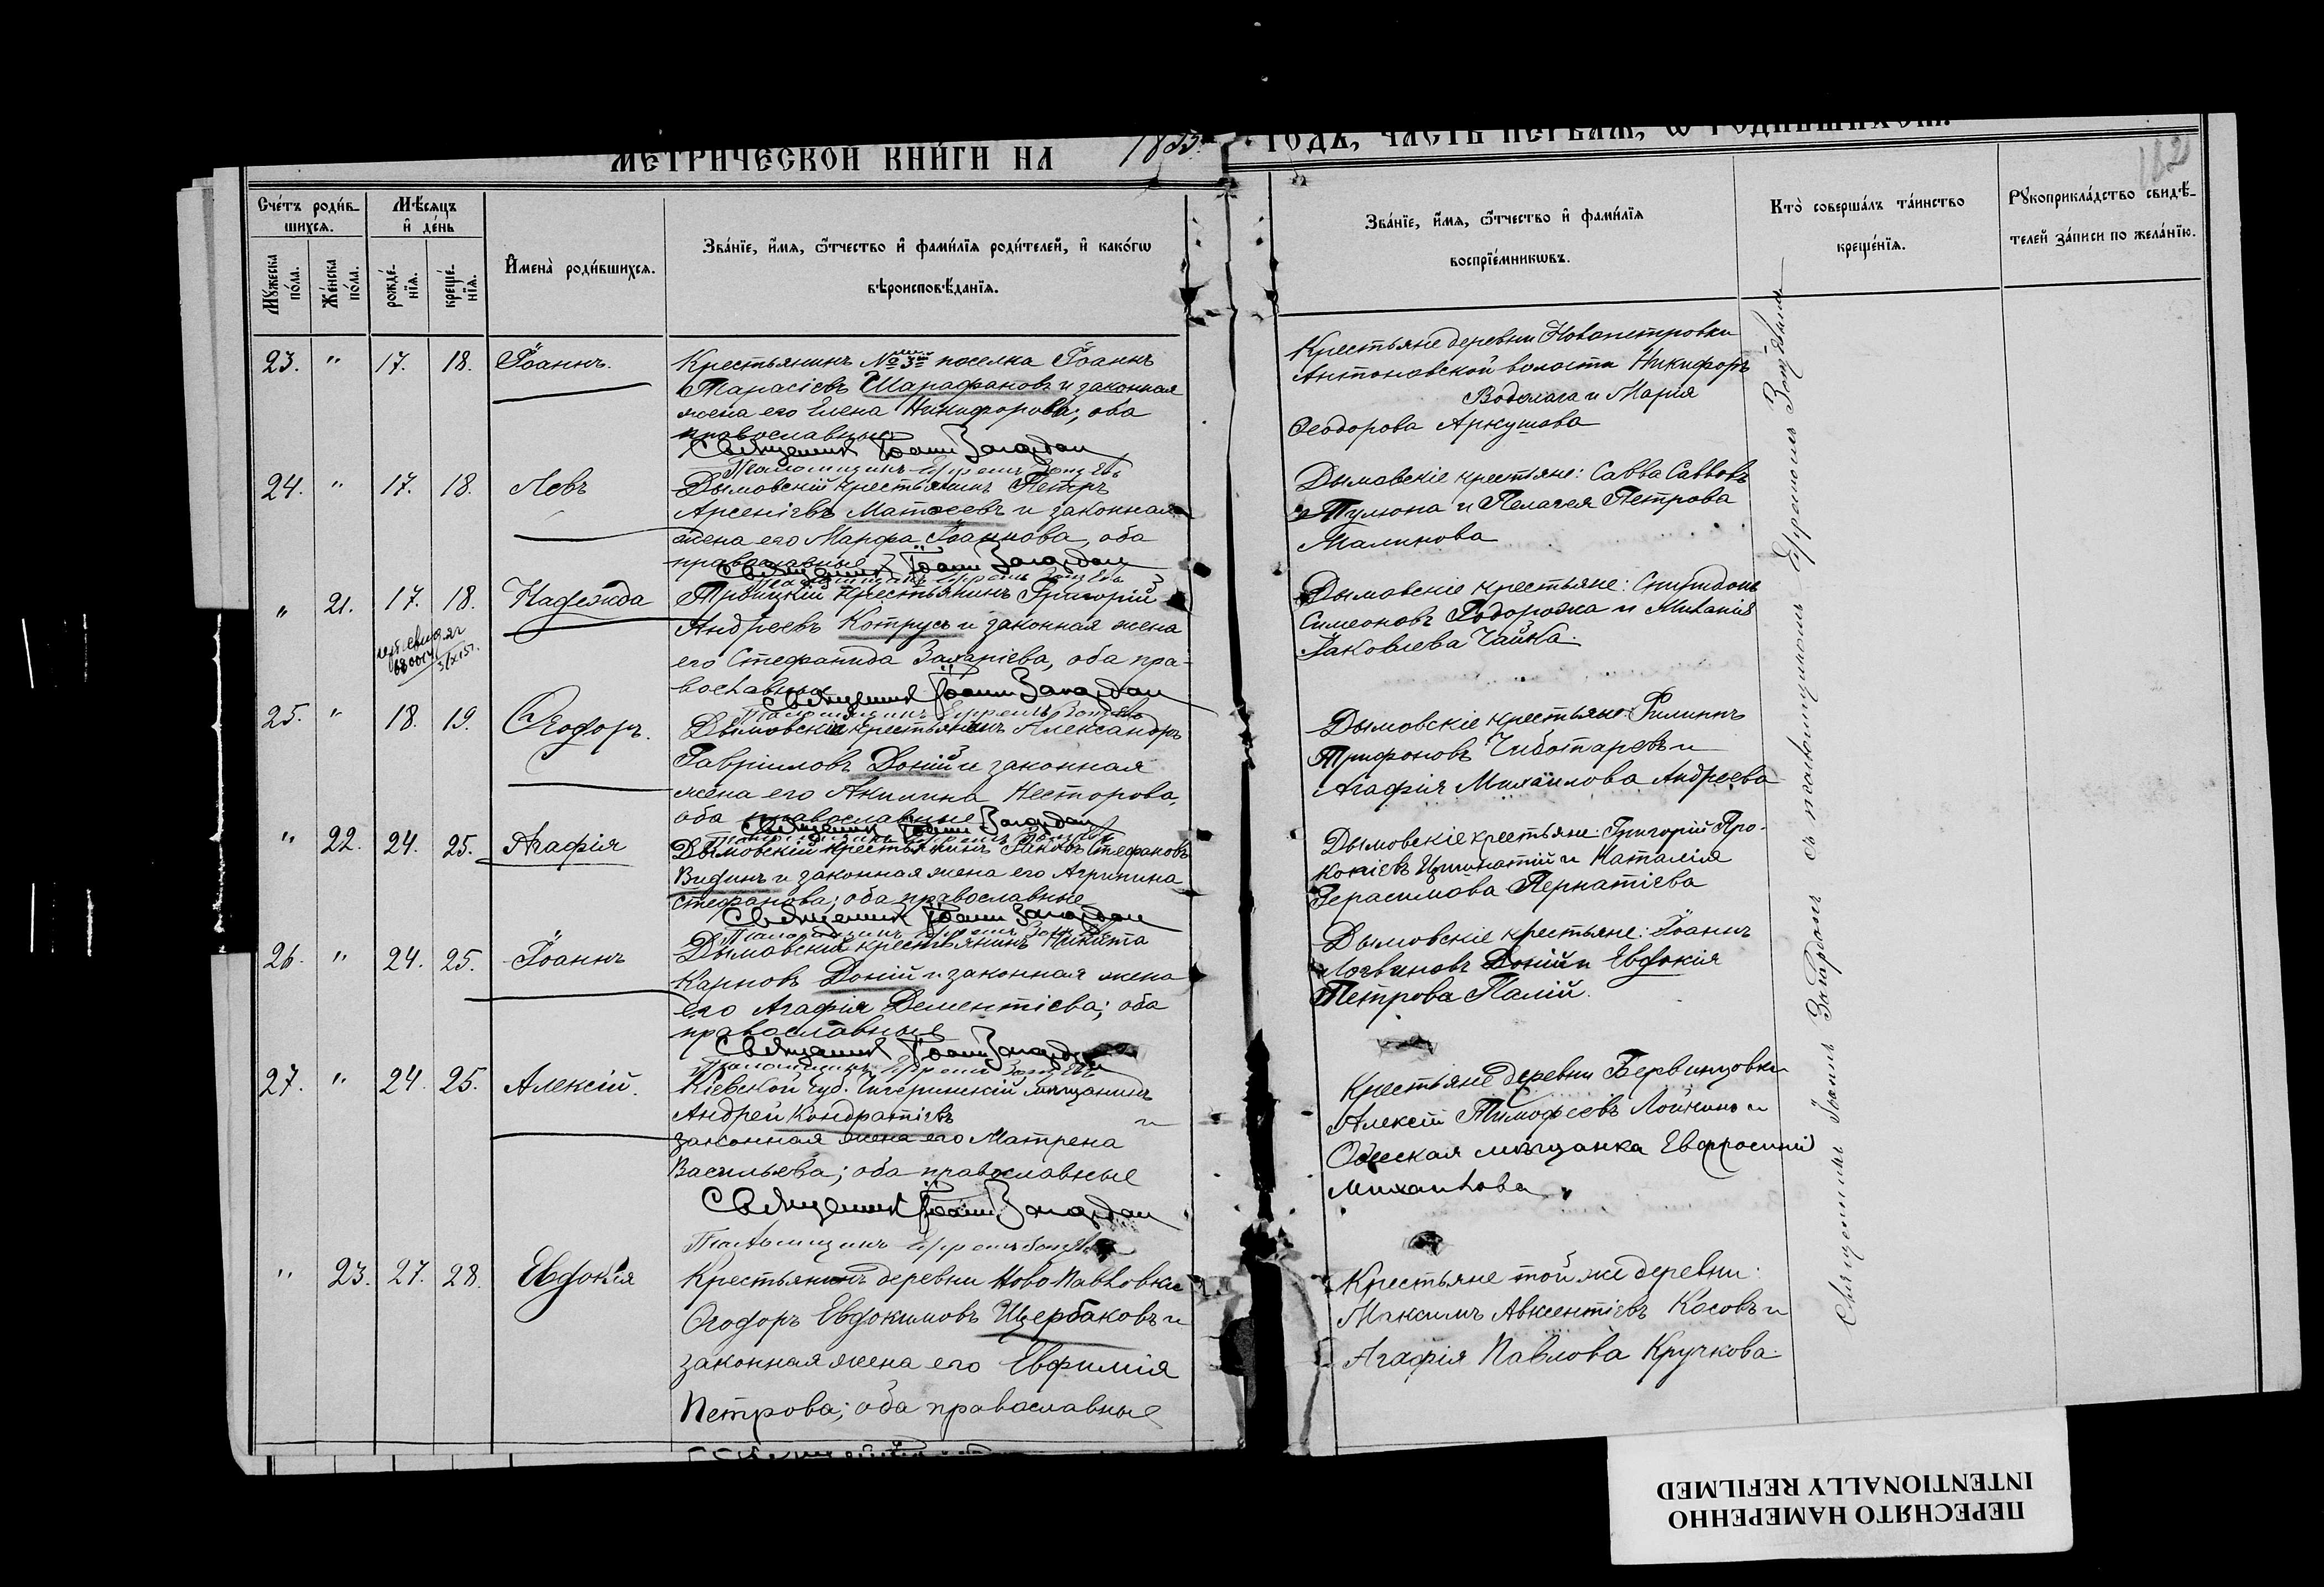 МЕТРИЧЕСКОЙ КНИ́ГИ НА 188
ГОДЪ, ЧАСТЬ ПЕРВАЯ, Ѡ РОДИВШИХСЯ.
Сче́тъ роди́в-
шихся.
Мѣ́сяцъ
и҆ де́нь
Мꙋ́жеска
по́ла.
Же́нска
по́ла.
рожде́-
нїя.
креще́-
нїя.
И҆мена̀ роди́вшихся.
Зва́нїе, и҆́мя, ѻ҆́тчество и҆ фами́лїя роди́телей, и҆ како́гѡ
вѣроисповѣ́данїя.
Зва́нїе, и҆́мя, ѻ҆́тчество и҆ фами́лїя
воспрїе́мникѡвъ.
Кто̀ соверша́лъ та́инство
креще́нїя.
Рꙋкоприкла́дство свидѣ́-
телей за́писи по жела́нїю.
23. " 17. 18. Іоаннъ.
Крестьянинъ №3й поселка Іоаннъ
Тарасіевъ Шарафановъ и законная
жена его Елена Никифорова; оба
православные
Священникъ Іоаннъ
Псаломщикъ Ефремъ
Крестьяне деревни Новопетровки
Антоновской волости Никифоръ
Водолага и Марія
Ѳеодорова Аркушова
24. " 17. 18. Левъ
Дымовскій крестьянинъ Петръ
Арсеніевъ Матѳеевъ и законная
жена его Марфа Іоаннова, оба
православные
Священникъ Іоаннъ
Псаломщикъ Ефремъ
Дымовскіе крестьяне: Савва Саввовъ
Тулюна и Пелагея Петрова
Малинова
" 21. 17. 18. Надежда
Троицкій крестьянинъ Григорій
Андреевъ Котрусъ и законная жена
его Стефанида Захаріева, оба пра-
вославные
Священникъ Іоаннъ
Псаломщикъ Ефремъ
Дымовскіе крестьяне: Спиридонъ
Симеоновъ и Меланія
Іаковлева Чайка.
25. " 18. 19. Ѳеодоръ.
Дымовскій крестьянинъ Александръ
Гавріиловъ Доній и законная
жена его Акилина Несторова,
оба православные
Священникъ Іоаннъ
Псаломщикъ Ефремъ
Дымовскіе крестьяне: Филиппъ
Трифоновъ Чиботаревъ и
Агафія Михаилова Андреева
" 22. 24. 25. Агафія
Дымовскій крестьянинъ Іаковъ Стефановъ
Видинъ и законная жена его Агрипина
Стефанова; оба православные
Священникъ Іоаннъ
Псаломщикъ Ефремъ
Дымовскіе крестьяне: Григорій Про-
копіевъ и Наталія
Герасимова Пернатіева
26. " 24. 25. Іоаннъ
Дымовскій крестьянинъ Никита
Карповъ Доній и законная жена
его Агафія Дементіева; оба
православные
Священникъ Іоаннъ
Псаломщикъ Ефремъ
Дымовскіе крестьяне: Іоаннъ
Логвиновъ Доній и Евдокія
Петрова Палій.
27. " 24. 25. Алексій.
Кіевской губ. Чигиринскій мѣщанинъ
Андрей Кондратіевъ и
законная жена его Матрена
Васильева; оба православные
Священникъ Іоаннъ
Псаломщикъ Ефремъ
Крестьяне деревни
Алексій Тимофеевъ и
Одесская мѣщанка Евфросинія
Михаилова
" 23. 27. 28. Евдокія
Крестьянинъ деревни Ново Павловки
Ѳеодоръ Евдокимовъ Щербаковъ и
законная жена его Евфимія
Петрова; оба православные
Крестьяне той же деревни:
Максимъ Авксентіевъ Косовъ и
Агафія Павлова Кручкова.
Священникъ Іоаннъ съ псаломщикомъ Ефремомъ
ПЕРЕСНЯТО НАМЕРЕННО
INTENTIONALLY REFILMED